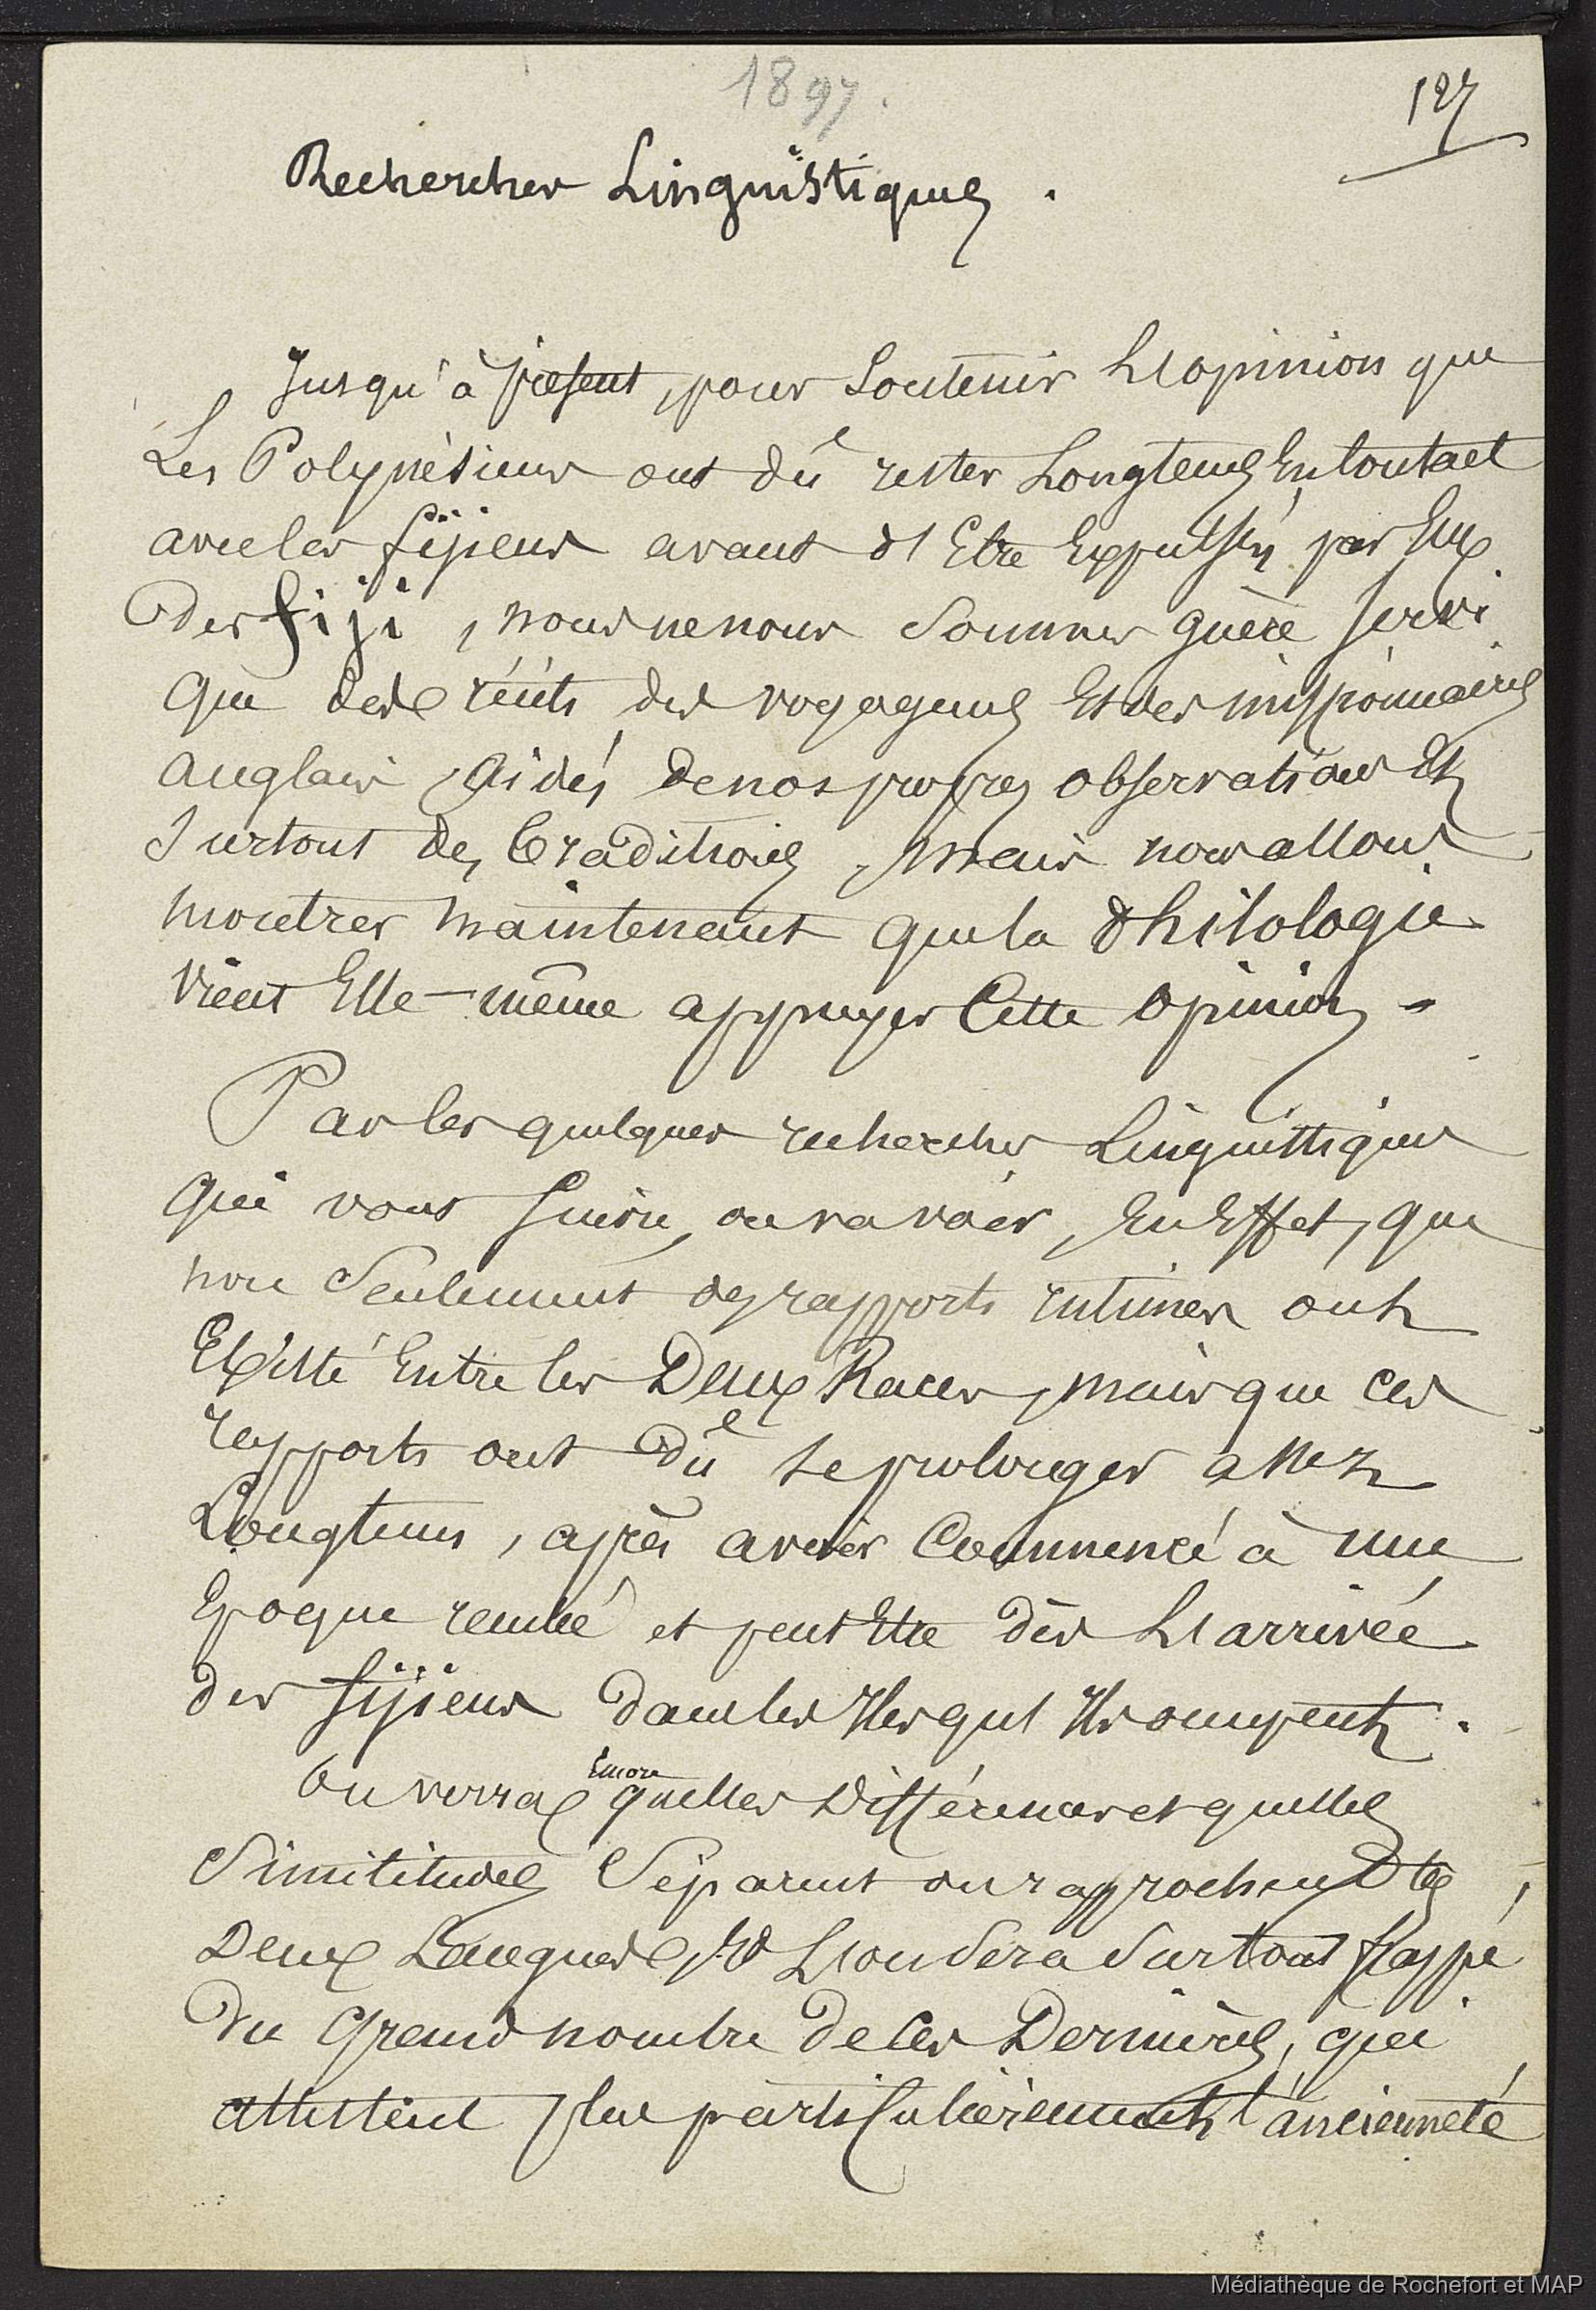 1897.
127
Recherches Linguistiques.
Jusqu'à présent, pour Soutenir L'opinion que
Les Polynésiens ont dû rester Longtems En Contact
avec les fijiens avant d'Etre Expulsés par Eux
des fiji, nous ne nous Sommes guère servi
que des récits des voyageurs Et des missionnaires
anglais, Aidés de nos propres observations Et
Surtout des Traditions, mais nous allons
montrer maintenant que la Philologie
vient Elle-même appuyer Cette opinion -
Par les quelques recherches Linguistiques
qui vont suivre, on va voir, En Effet, que
non Seulement des rapports intimes ont
Existé Entre les Deux Races, mais que ces
rapports ont dû se prolonger assez
Longtems, après avoir Commencé à une
Epoque reculée et peut Etre dès L'arrivée
des fijiens dans les Iles qu'Ils occupent.
On verra Encore quelles Différences et quelles
Similitudes Séparent ou rapprochent les
Deux Langues, Et L'on Sera Surtout frappé
du Grand nombre de Ces Dernières, qui
attestent plus particulièrement l'ancienneté
Médiathèque de Rochefort et MAP